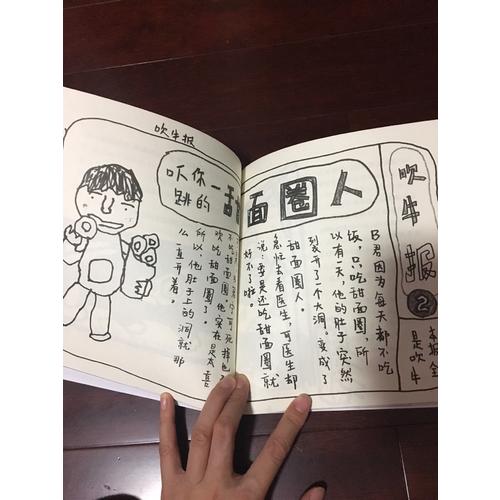 吹牛报
吹牛报
2
本报全
是吹牛
吓你一
跳的
甜面圈人
B君因为每天都不吃
饭,只吃甜面圈,所
以有天,他的肚子突然
裂开了一个大洞。变成了
甜面圈人。
急忙去看医生,可医生却
说:要是还吃甜面圈就
好不了啦。
宁可死掉也
甜面圈,他实在是太喜
欢吃甜面圈了。
所以,他肚子上的洞,就那
么直开着。